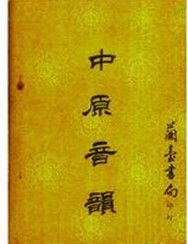 中原音韻
蘭臺書局
印行